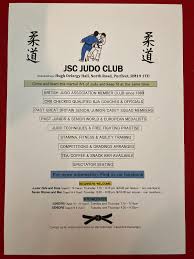 柔道 柔道
JSC JUDO CLUB
Hugh Delargy Hall, North Road, Purfleet, RM19 1TU
Come and learn the martial Art of Judo and keep fit at the same time
BRITISH JUDO ASSOCIATION MEMBER CLUB since 1989
CRB CHECKED QUALIFIED BJA COACHES & OFFICIALS
PAST GREAT BRITAIN SENIOR/JUNIOR/CADET SQUAD MEMBERS
PAST JUNIOR & SENIOR WORLD & EUROPEAN MEDALISTS
JUDO TECHNIQUES & FREE FIGHTING PRACTISE
STAMINA, FITNESS & AGILITY TRAINING
COMPETITIONS & GRADINGS
TEA COFFEE & SNACK BAR AVAILABLE
SPECTATOR SEATING
For more information: Find us on facebook
BEGINNERS WELCOME
JUNIORS
SENIORS